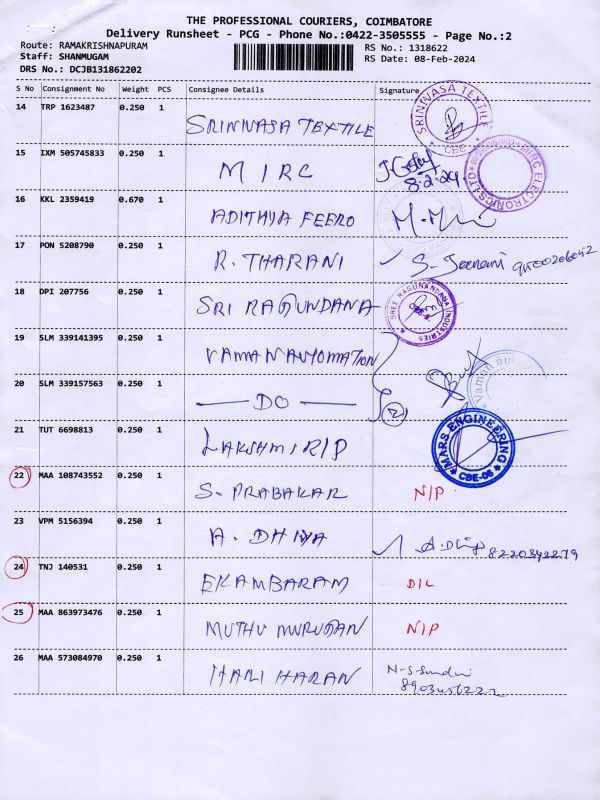 THE PROFESSIONAL COURIERS, COIMBATORE
Delivery Runsheet - PCG - Phone No.:0422-3505555 - Page No.:2
Route: RAMAKRISHNAPURAM
Staff: SHANMUGAM
DRS No.: DCJB131862202
RS No.: 1318622
RS Date: 08-Feb-2024
S No Consignment No Weight PCS Consignee Details Signature
14 TRP 1623487 0.250 1 SRINIVASA TEXTILE
SRINIVASA TEXTILE CBE
15 IXM 505745833 0.250 1 MIRC
8.2.24
MIRC ELECTRONICS LTD
16 KKL 2359419 0.670 1 ADITHYA FEERO
17 PON 5208790 0.250 1 R. THARANI
18 DPI 207756 0.250 1 SRI RAGUNDANA
SREE RAGUNANDANA INDUSTRIES
19 SLM 339141395 0.250 1 VAMAN AUTOMATION
20 SLM 339157563 0.250 1 — DO — 2
21 TUT 6698813 0.250 1 LAKSHMI RIP
MARS ENGINEERING CBE-06
22 MAA 108743552 0.250 1 S. PRABAKAR N/P
23 VPM 5156394 0.250 1 A. DHIYA
8220392279
24 TNJ 140531 0.250 1 EKAMBARAM D/L
25 MAA 863973476 0.250 1 MUTHU MURUGAN N/P
26 MAA 573084970 0.250 1 HARI HARAN